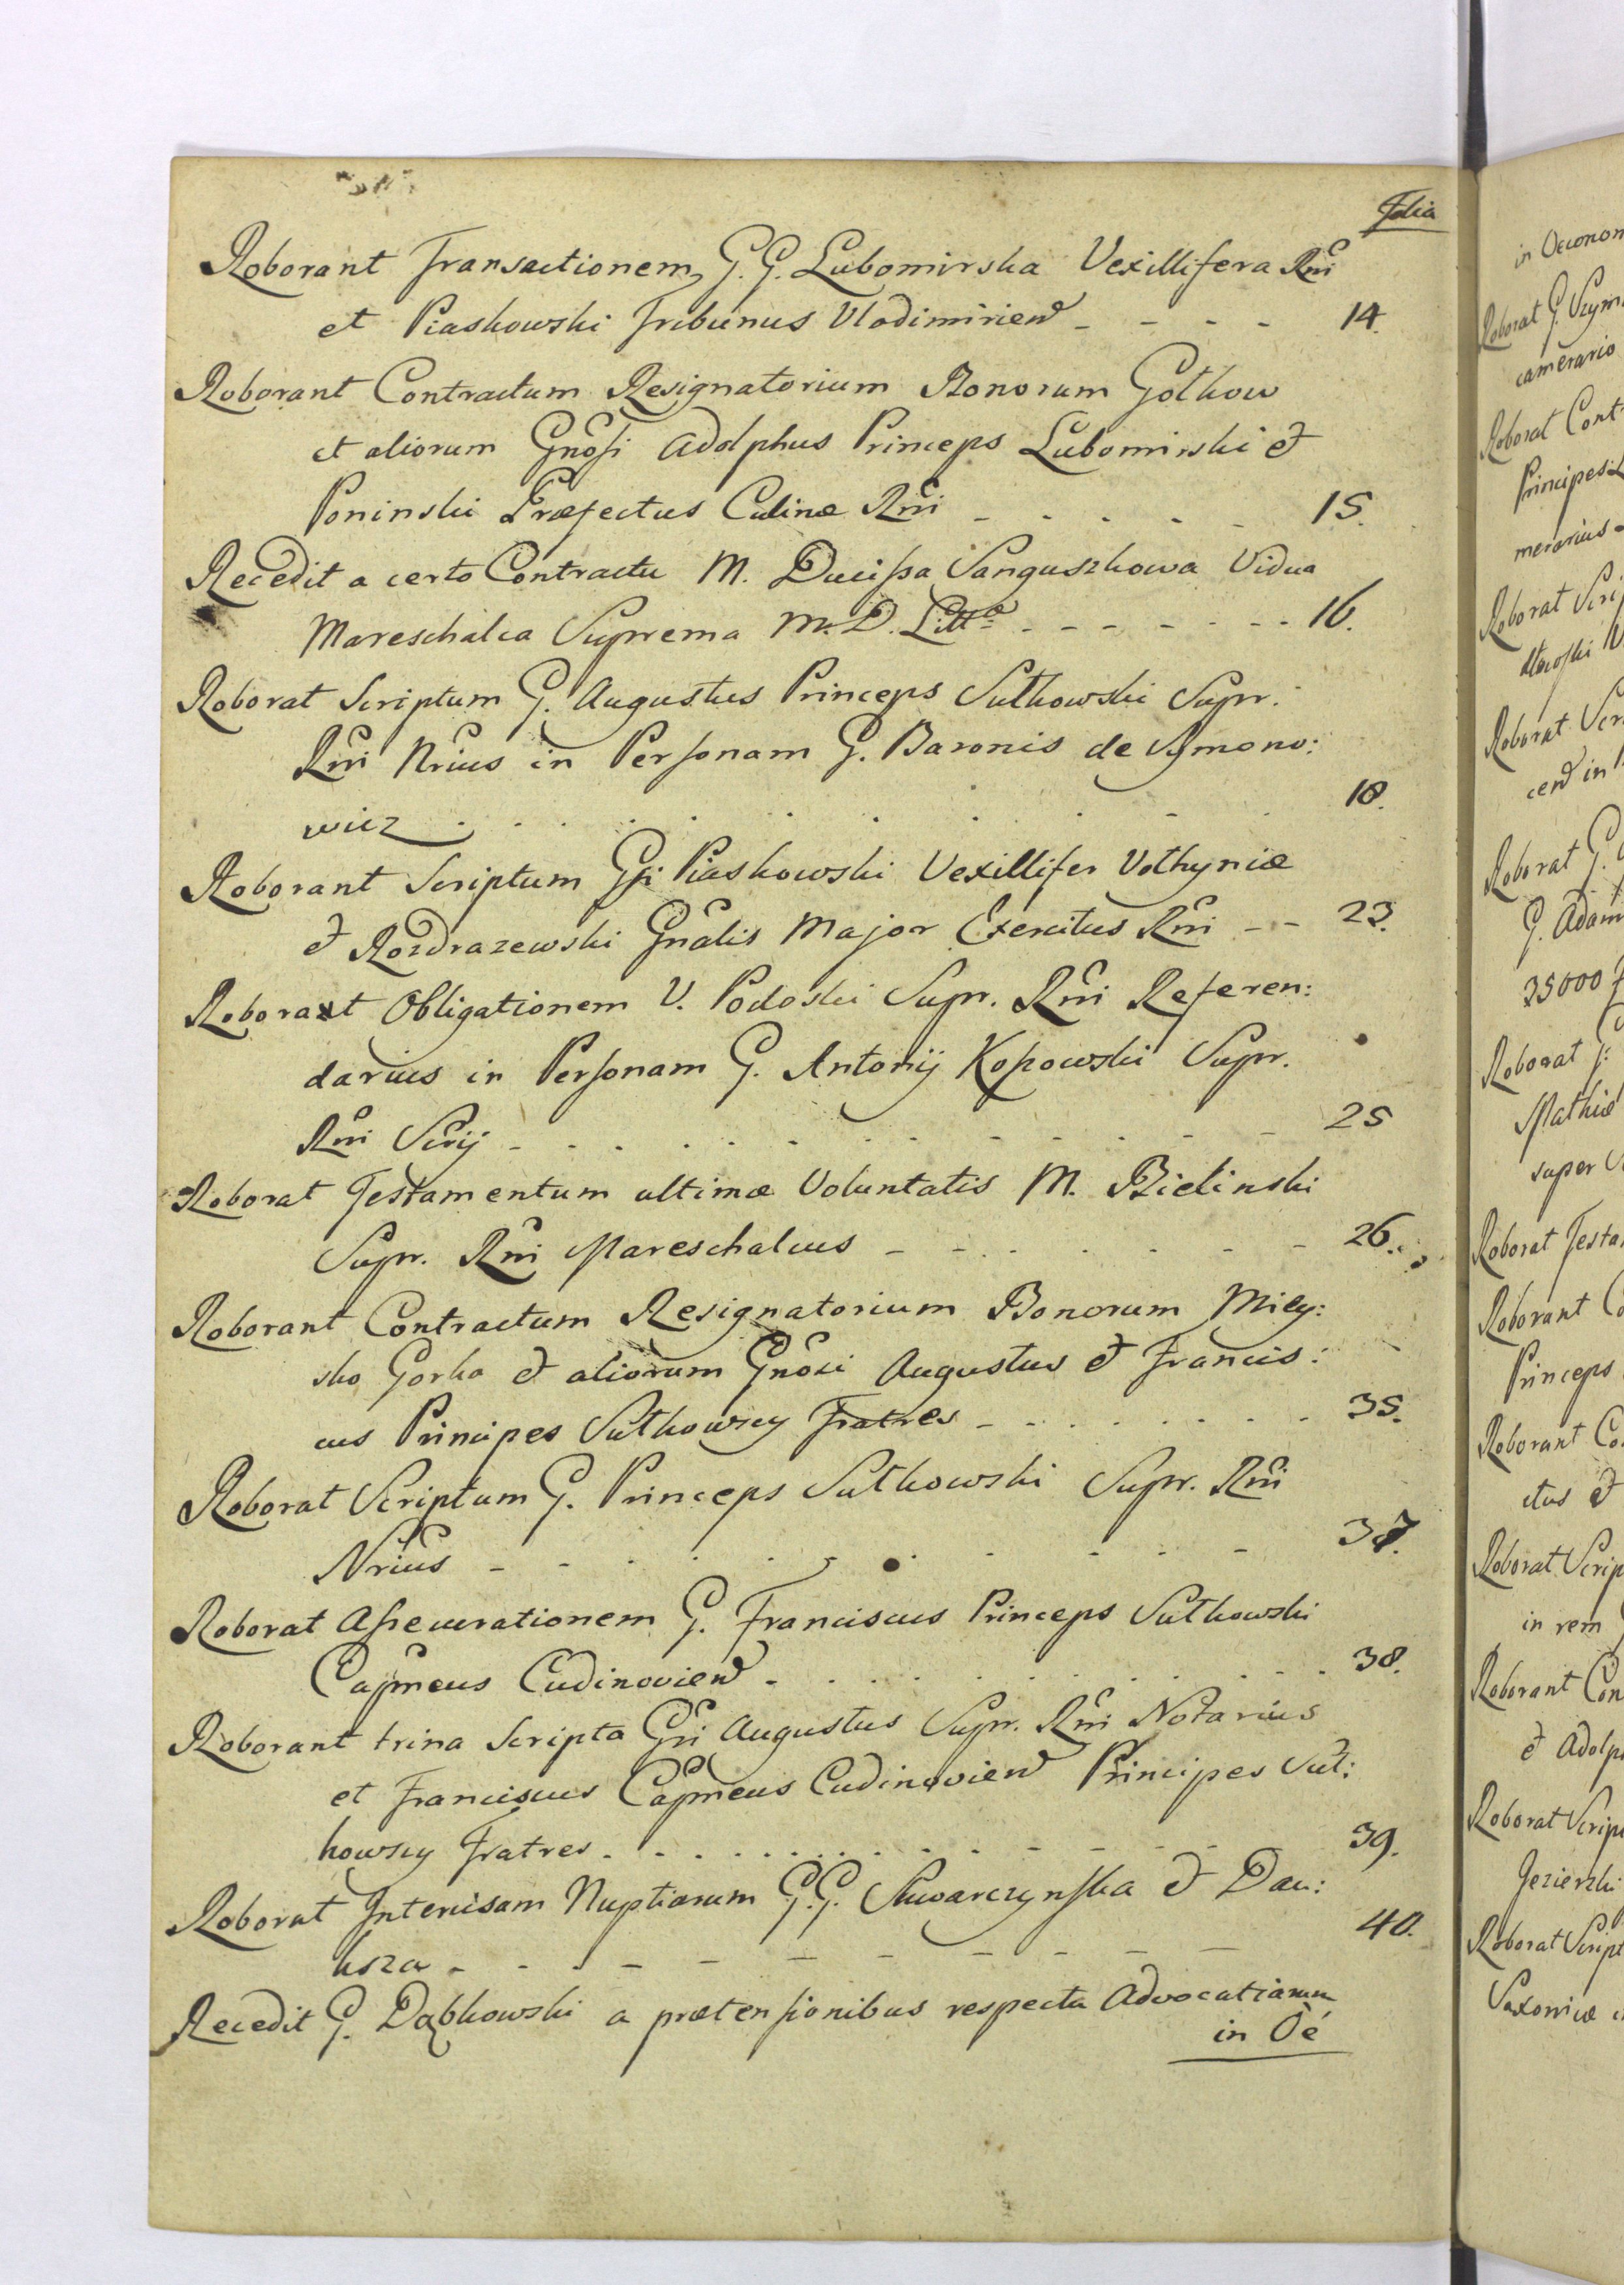 Folia
Roborant Transactionem G. G. Lubomirska Vexillifera Rni
et Piaskowski Tribunus Vlodimirien - - - - 14.
Roborant Contractum Resignatorium Bonorum Golkow
et aliorum Gnosi Adolphus Princeps Lubomirski et
Poninski Præfectus Culinæ Rni - - - - - 15.
Recedit a certo Contractu M. Ducissa Sanguszkowa Vidua
Mareschalca Suprema M. D. Litt: - - - - - - - 16.
Roborat Scriptum G. Augustus Princeps Sulkowski Supr.
Rni Nrius in Personam G. Baronis de Symono:
wicz - - - - - - - - - - 18.
Roborant Scriptum Gsi Piaskowski Vexillifer Volhyniæ
et Rozdrazewski Gnalis Major Exercitus Rni - - 23.
Roborat Obligationem V. Podoski Supr. Rni Referen:
darius in Personam G. Antonij Kossowski Supr.
Rni Scrij - - - - - - - - - - 25
Roborat Testamentum ultimæ Voluntatis M. Bielinski
Supr. Rni Mareschalcus - - - - - - - 26.
Roborant Contractum Resignatorium Bonorum Miey:
sko Gorka et aliorum Gnosi Augustus et Francis:
cus Principes Sulkowscy Fratres - - - - - - - 35.
Roborat Scriptum G. Princeps Sulkowski Supr. Rni
Nrius - - - - - - - - - - 37.
Roborat Assecurationem G. Franciscus Princeps Sulkowski
Capneus Cudinovien - - - - - - - - - - 38.
Roborant trina Scripta Gsi Augustus Supr. Rni Notarius
et Franciscus Capneus Cudinovien Principes Sul:
kowscy Fratres - - - - - - - - - - 39.
Roborat Intercisam Nuptiarum G. G. Skwarczynska et Dau:
ksza - - - - - - - - - - 40.
Recedit G. Dąbkowski a prætensionibus respectu Advocatiarum
in Oe
in Oeconom
Roborat G. Szym
camerario
Roborat Cont
Principes L
merarius
Roborat Scri
Roborat Scr
cen in
Roborat G.
G. Adam
35000 f
Roborat G:
Mathiæ
super
Roborat Testa
Roborant Co
Princeps
Roborant Co
ctus et
Roborat Scrip
in rem
Roborant Con
et Adolp
Roborat Scrip
Jezierski
Roborat Script
Saxoniæ